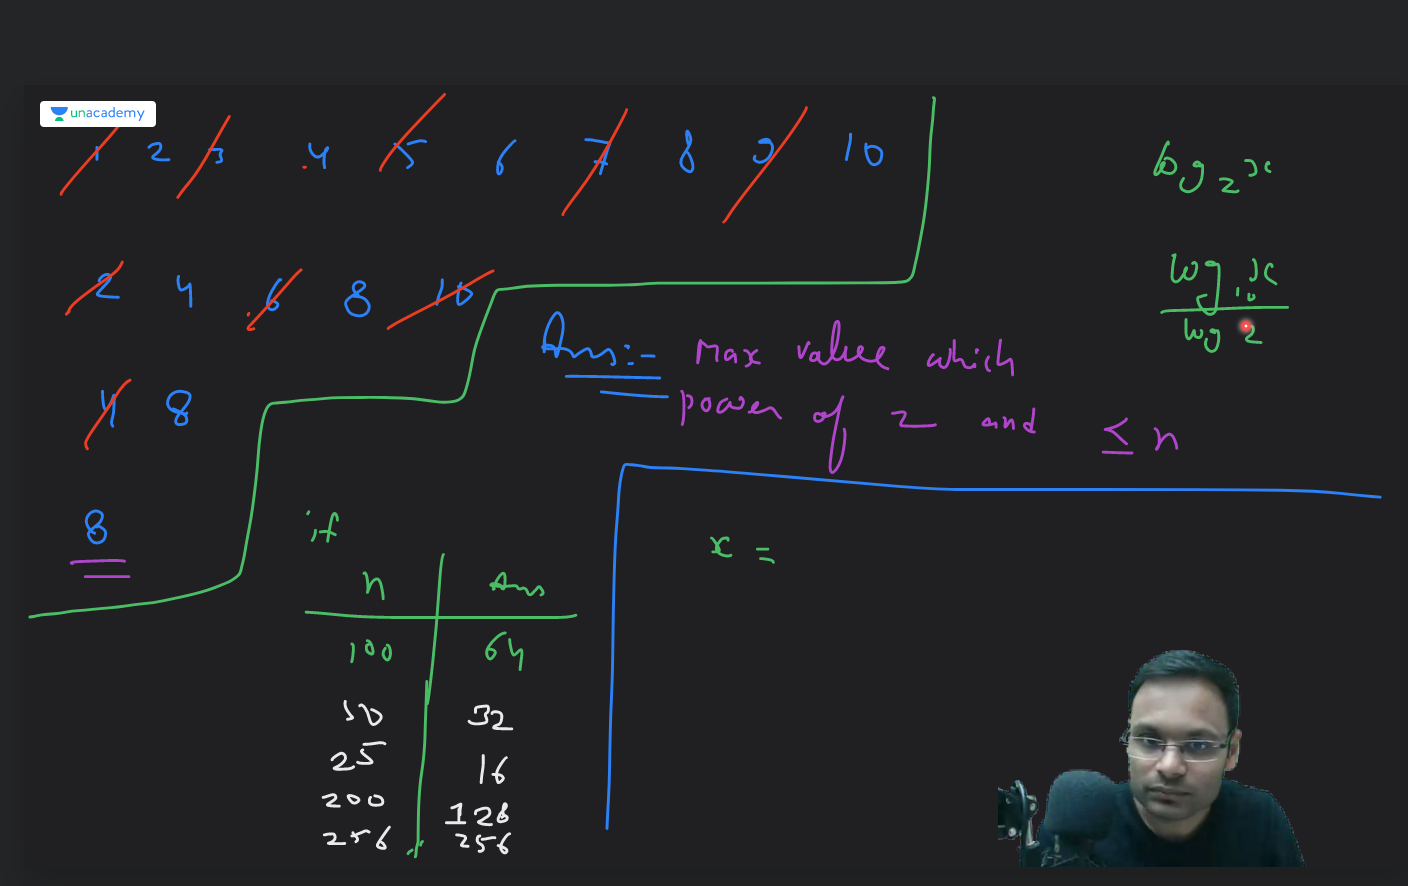 unacademy
1 2 3 4 5 6 7 8 9 10
2 4 6 8 10
4 8
8
Ans:- Max value which
power of 2 and ≤ n
log₂x
log₁₀x
log 2
if
n Ans
100 64
50 32
25 16
200 128
256 256
x =